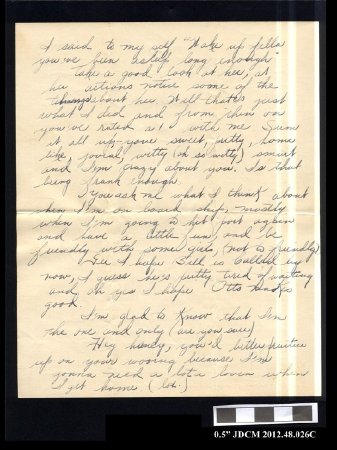 I said to my self "Wake up fella
you've been asleep long enough"
Take a good look at her, at
her actions notice some of the
things about her. Well that's just
what I did and from then on
you've rated a1 with me. Sum
it all up - your sweet, pretty, home
like, jovial, witty (oh so witty) smart
and I'm crazy about you. Is that
being frank enough.
You ask me what I think about
when I'm on board ship, mostly
when I'm going to hit
and have a little fun, and be
friendly with some girls, (not to friendly)
Gee I hope Bill is called up
now, I guess he's pretty tired of waiting
and oh yes I hope Otto makes
good.
I'm glad to know that I'm
the one and only (are you sure)
Hey honey, you'd better practice
up on your wooing because I'm
gonna need a lota lovin when
I get home (lots.)
0.5" JDCM 2012.48.026C